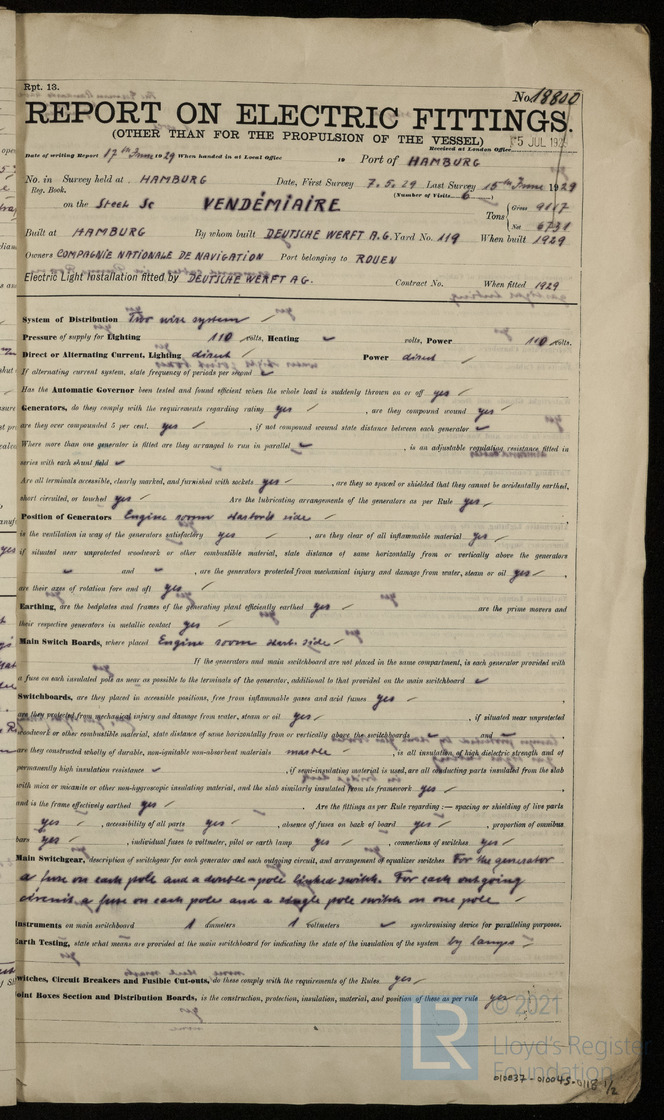 Rpt. 13.
No. 18800
REPORT ON ELECTRIC FITTINGS.
(OTHER THAN FOR THE PROPULSION OF THE VESSEL)
Received at London Office 5 JUL 19
Date of writing Report 17th June 1929 When handed in at Local Office 19 Port of HAMBURG
No. in Survey held at HAMBURG Date, First Survey 7.5.29 Last Survey 15th June 1929
Reg. Book. (Number of Visits 6)
on the Steel Sc VENDÉMIAIRE Tons { Gross 9117
Net 6731
Built at HAMBURG By whom built DEUTSCHE WERFT A.G. Yard No. 119 When built 1929
Owners COMPAGNIE NATIONALE DE NAVIGATION Port belonging to ROUEN
Electric Light Installation fitted by DEUTSCHE WERFT AG. Contract No. When fitted 1929
System of Distribution Two wire system
Pressure of supply for Lighting 110 volts, Heating volts, Power 110 volts.
Direct or Alternating Current, Lighting direct Power direct
If alternating current system, state frequency of periods per second
Has the Automatic Governor been tested and found efficient when the whole load is suddenly thrown on or off yes
Generators, do they comply with the requirements regarding rating yes , are they compound wound yes
are they over compounded 5 per cent. yes , if not compound wound state distance between each generator
Where more than one generator is fitted are they arranged to run in parallel , is an adjustable regulating resistance fitted in
series with each shunt field
Are all terminals accessible, clearly marked, and furnished with sockets yes , are they so spaced or shielded that they cannot be accidentally earthed,
short circuited, or touched yes Are the lubricating arrangements of the generators as per Rule yes
Position of Generators Engine room starbo'd side
is the ventilation in way of the generators satisfactory yes , are they clear of all inflammable material yes
if situated near unprotected woodwork or other combustible material, state distance of same horizontally from or vertically above the generators
and , are the generators protected from mechanical injury and damage from water, steam or oil yes
are their axes of rotation fore and aft yes
Earthing, are the bedplates and frames of the generating plant efficiently earthed yes are the prime movers and
their respective generators in metallic contact yes
Main Switch Boards, where placed Engine room starb. side
If the generators and main switchboard are not placed in the same compartment, is each generator provided with
a fuse on each insulated pole as near as possible to the terminals of the generator, additional to that provided on the main switchboard
Switchboards, are they placed in accessible positions, free from inflammable gases and acid fumes yes
are they protected from mechanical injury and damage from water, steam or oil yes , if situated near unprotected
woodwork or other combustible material, state distance of same horizontally from or vertically above the switchboards and
are they constructed wholly of durable, non-ignitable non-absorbent materials marble , is all insulation of high dielectric strength and of
permanently high insulation resistance , if semi-insulating material is used, are all conducting parts insulated from the slab
with mica or micanite or other non-hygroscopic insulating material, and the slab similarly insulated from its framework yes
and is the frame effectively earthed yes . Are the fittings as per Rule regarding:— spacing or shielding of live parts
yes , accessibility of all parts yes , absence of fuses on back of board yes , proportion of omnibus
bars yes , individual fuses to voltmeter, pilot or earth lamp yes , connections of switches yes
Main Switchgear, description of switchgear for each generator and each outgoing circuit, and arrangement of equalizer switches For the generator
a fuse on each pole and a double-pole linked switch. For each outgoing
circuit a fuse on each poles and a single pole switch on one pole
Instruments on main switchboard 1 ammeters 1 voltmeters synchronising device for paralleling purposes.
Earth Testing, state what means are provided at the main switchboard for indicating the state of the insulation of the system by lamps
Switches, Circuit Breakers and Fusible Cut-outs, do these comply with the requirements of the Rules yes
Joint Boxes Section and Distribution Boards, is the construction, protection, insulation, material, and position of these as per rule yes
© 2021
LR
Lloyd's Register
Foundation
010037-010045-0118 1/2